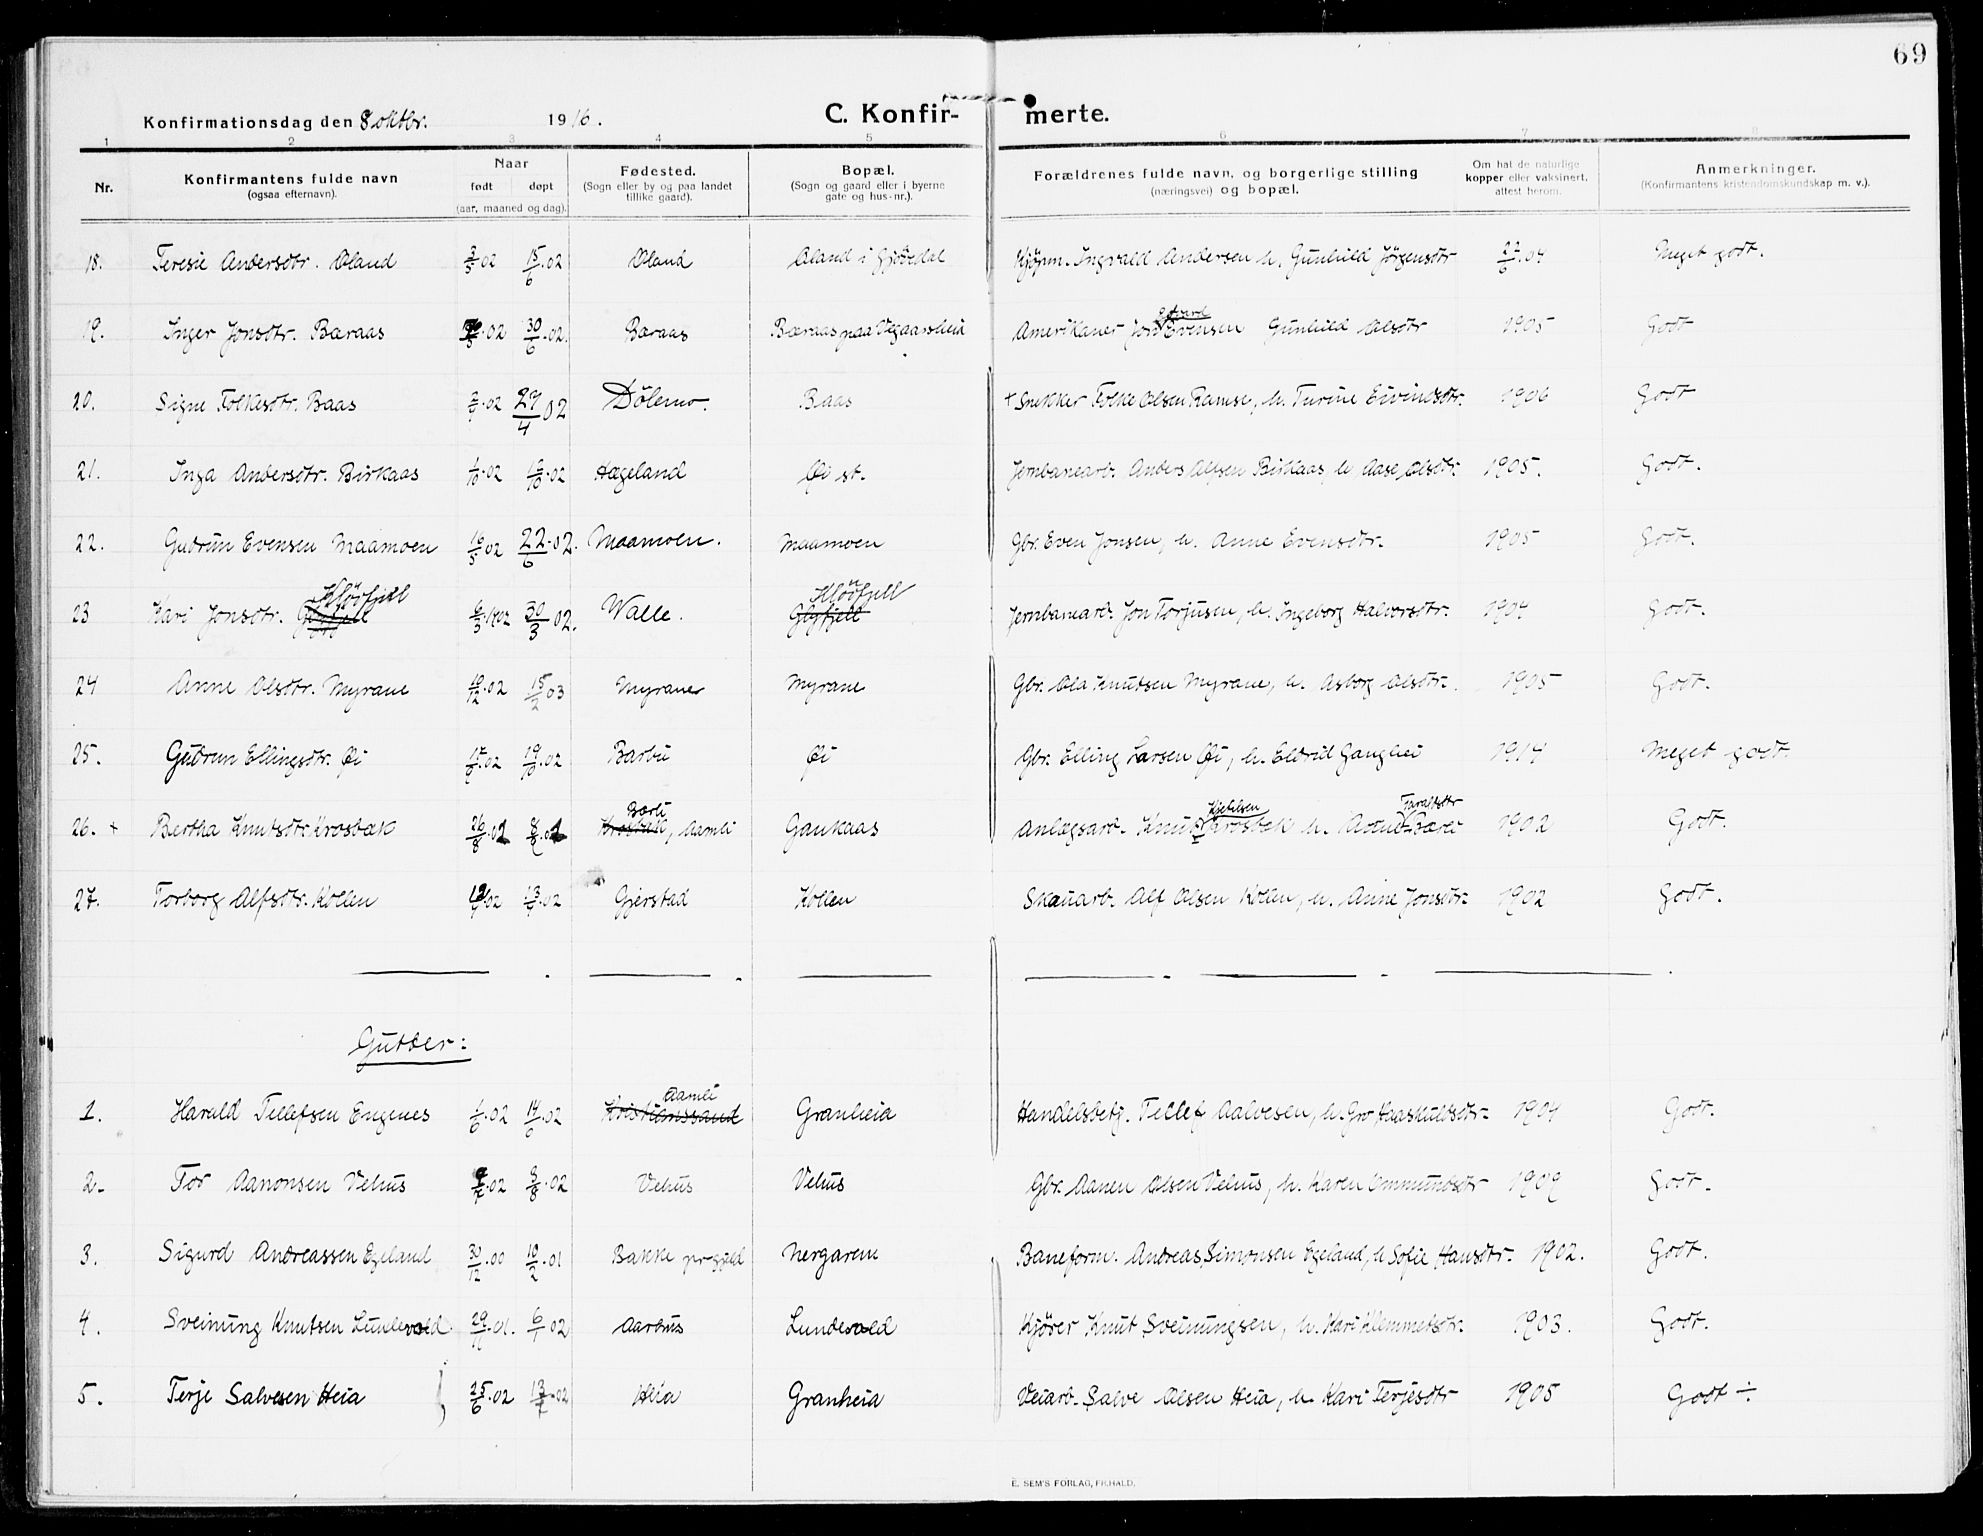 69
Konfirmationsdag den 8 oktbr. 1916.
C. Konfirmerte.
1 2 3 4 5 6 7 8
Nr.
Konfirmantens fulde navn (ogsaa efternavn).
Naar født døpt (aar, maaned og dag).
Fødested. (Sogn eller by og paa landet tillike gaard).
Bopæl. (Sogn og gaard eller i byerne gate og hus-nr.).
Forældrenes fulde navn, og borgerlige stilling (næringsvei) og bopæl.
Om hat de naturlige kopper eller vaksinert, attest herom.
Anmerkninger. (Konfirmantens kristendomskundskap m. v.).
18. Teresie Andersdtr. Øland 3/5 02 15/6 02 Øland Øland i Gjövdal Kjøpm. Ingvald Andersen h. Gunhild Jörgensdtr 22/6 04 Meget godt.
19. Inger Jonsdtr. Bæraas 02 30/6 02. Bæraas Bæraas paa Vegaarsheia Amerikaner Jon Edvard Evensen Gunhild Olsdtr 1905 Godt
20. Signe Folkesdtr. Baas 02 27/4 02 Dölemo. Baas + Snekker Folke Olsen Ramse, h. Turine Eivindsdtr. 1906 Godt
21. Inga Andersdtr. Birkaas 1/10 02 12/10 02 Hægeland Øi st. Jernbanearb. Anders Olsen Birkaas, h Aase Olsdtr. 1905. Godt.
22. Gudrun Evensen Maamoen 16/5 02 22/6 02. Maamoen. Maamoen Gbr. Even Jonsen, h. Anne Evensdtr. 1905 Godt.
23 Kari Jonsdtr. Klövfjell 6/3 1902 30/3 02. Walle. Klövfjell Jernbanearb. Jon Torjusen, h. Ingeborg Halvorsdtr. 1904 Godt.
24 Anne Olsdtr. Myrane 10/12 02 15/2 03 Myrane Myrane Gbr. Ola Knutsen Myrane, h. Asborg Olsdtr. 1905 Godt.
25. Gudrun Ellingsdtr. Øi 02 19/10 02 Barbu Øi Gbr. Elling Larsen Øi, h. Eldrid Ganghei 1914 Meget godt.
26. + Bertha Knutsdtr. Krosbæk 26/8 01 8/9 01 Bærli, Aamli Gaukaas Anlægsarb. Knut Kjetilsen Krosbæk h. Taraldsdtr 1902 Godt.
27. Torborg Alfsdtr. Kollen 02 13/7 02 Gjerstad Kollen Skauarb. Alf Olsen Kollen, h. Anne Jonsdtr. 1902 Godt.
Gutter:
1. Harald Tellefsen Engenes 1/6 02 14/6 02 Kristianssand Aamli Granheia Handelsbetj. Tellef Aalvesen, h. Gro Haaskuldsdtr. 1904 Godt.
2. Tor Aanonsen Vehus 02 3/8 02 Vehus Vehus Gbr. Aanen Olsen Vehus, h. Karen Ommundsdtr 1909 Godt.
3. Sigurd Andreassen Egeland 30/12 00 10/2 01 Bakke prgjæld Nergarene Baneform. Andreas Simonsen Egeland, h Sofie Hansdtr. 1902. Godt.
4. Sveinung Knutsen Lundevold 29/11 01. 6/1 02 Aarhus Lundevold Kjører Knut Sveinungsen, h. Kari Klemmetsdtr. 1903. Godt.
5. Terje Salvesen Heia 25/6 02 13/7 02 Heia Granheia Veiarb. Salve Olsen Heia, h. Kari Terjesdtr 1905 Godt ÷
E. SEM'S FORLAG, FR.HALD.